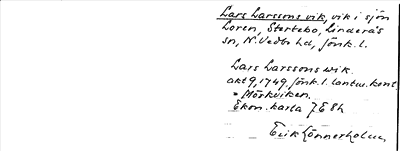 Lars Larssons vik, vik i sjön
Loren, Sterteko, Linderås
sn, N. Vedbo hd, Jönk. l.
Lars Larssons wik.
akt 9, 1749. Jönk. l. lantm. kont.
= Mörkviken.
Ekon. karta 7E8h
Erik Lönnerholm